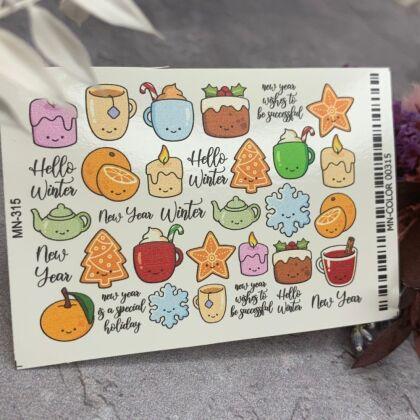 new year
wishes to
be successful
Hello
Winter
Hello
Winter
New Year
Winter
New
Year
new year
is a special
holiday
new year
wishes to
be successful
Hello
Winter
New Year
MN-315
MN-COLOR 00315